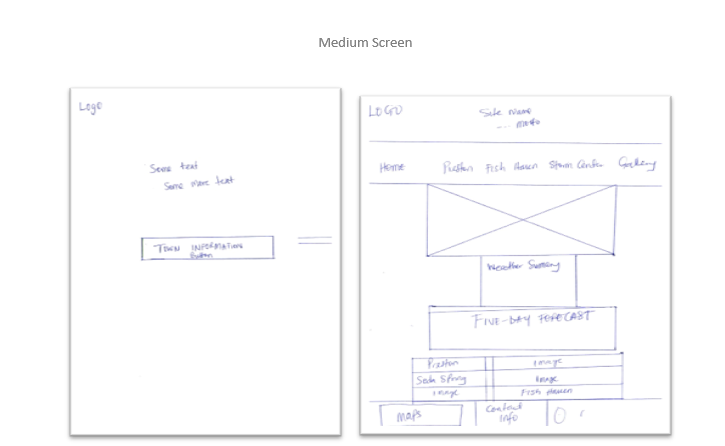 Medium Screen
Logo
Some text
Some more text
TOWN INFORMATION
Button
LOGO
Site Name
HOME Preston Fish Haven Storm Center Gallery
Weather Summary
FIVE-DAY FORECAST
Preston Image
Soda Spring Image
Image Fish Haven
MAPS
Contact
Info